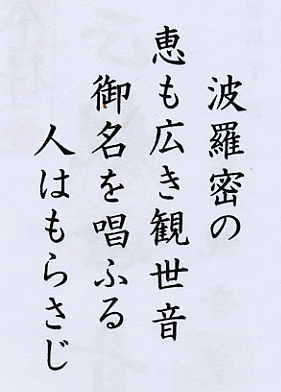 波羅密の
恵も広き観世音
御名を唱ふる
人はもらさじ